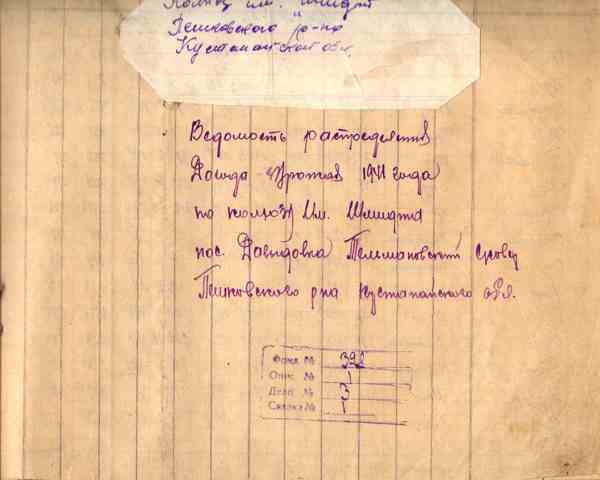 Колхоз им. Шмидт
Пешковского р-на
Кустанайской обл.
Ведомость распределения
Дохода Урожая 1941 года
по колхозу Им. Шмидта
пос. Давидовка Тельмановский с/совет
Пешковского р-на Кустанайского обл.
Фонд № 392
Опис. № 1
Дело № 3
Связка №